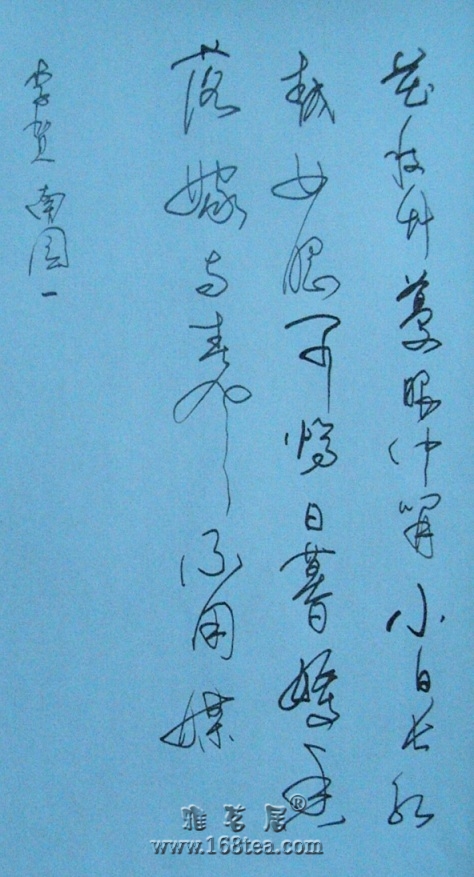 花枝艸蔓眼中開小白长红
越女腮可怜日暮嫣香
落嫁与春风不用媒
李贺南园一
雅茗居®
www.168tea.com